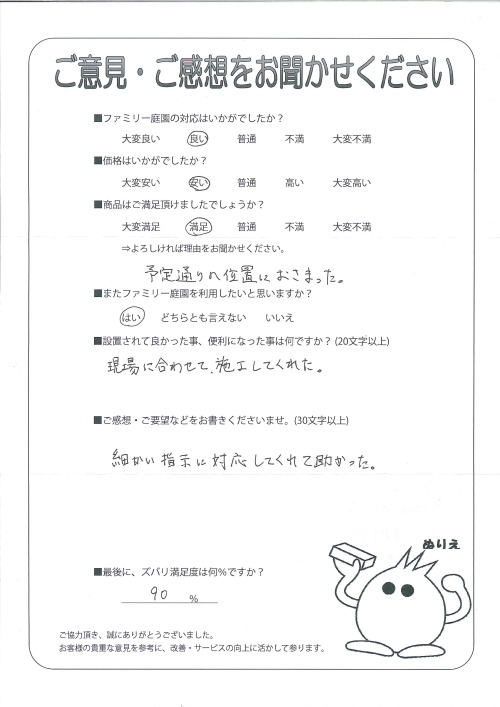 ご意見・ご感想をお聞かせください
■ファミリー庭園の対応はいかがでしたか？
大変良い 良い 普通 不満 大変不満
■価格はいかがでしたか？
大変安い 安い 普通 高い 大変高い
■商品はご満足頂けましたでしょうか？
大変満足 満足 普通 不満 大変不満
⇒よろしければ理由をお聞かせください。
予定通りの位置におさまった。
■またファミリー庭園を利用したいと思いますか？
はい どちらとも言えない いいえ
■設置されて良かった事、便利になった事は何ですか？(20文字以上)
現場に合わせて、施工してくれた。
■ご感想・ご要望などをお書きくださいませ。(30文字以上)
細かい指示に対応してくれて助かった。
ぬりえ
■最後に、ズバリ満足度は何％ですか？
90 ％
ご協力頂き、誠にありがとうございました。
お客様の貴重な意見を参考に、改善・サービスの向上に活かして参ります。